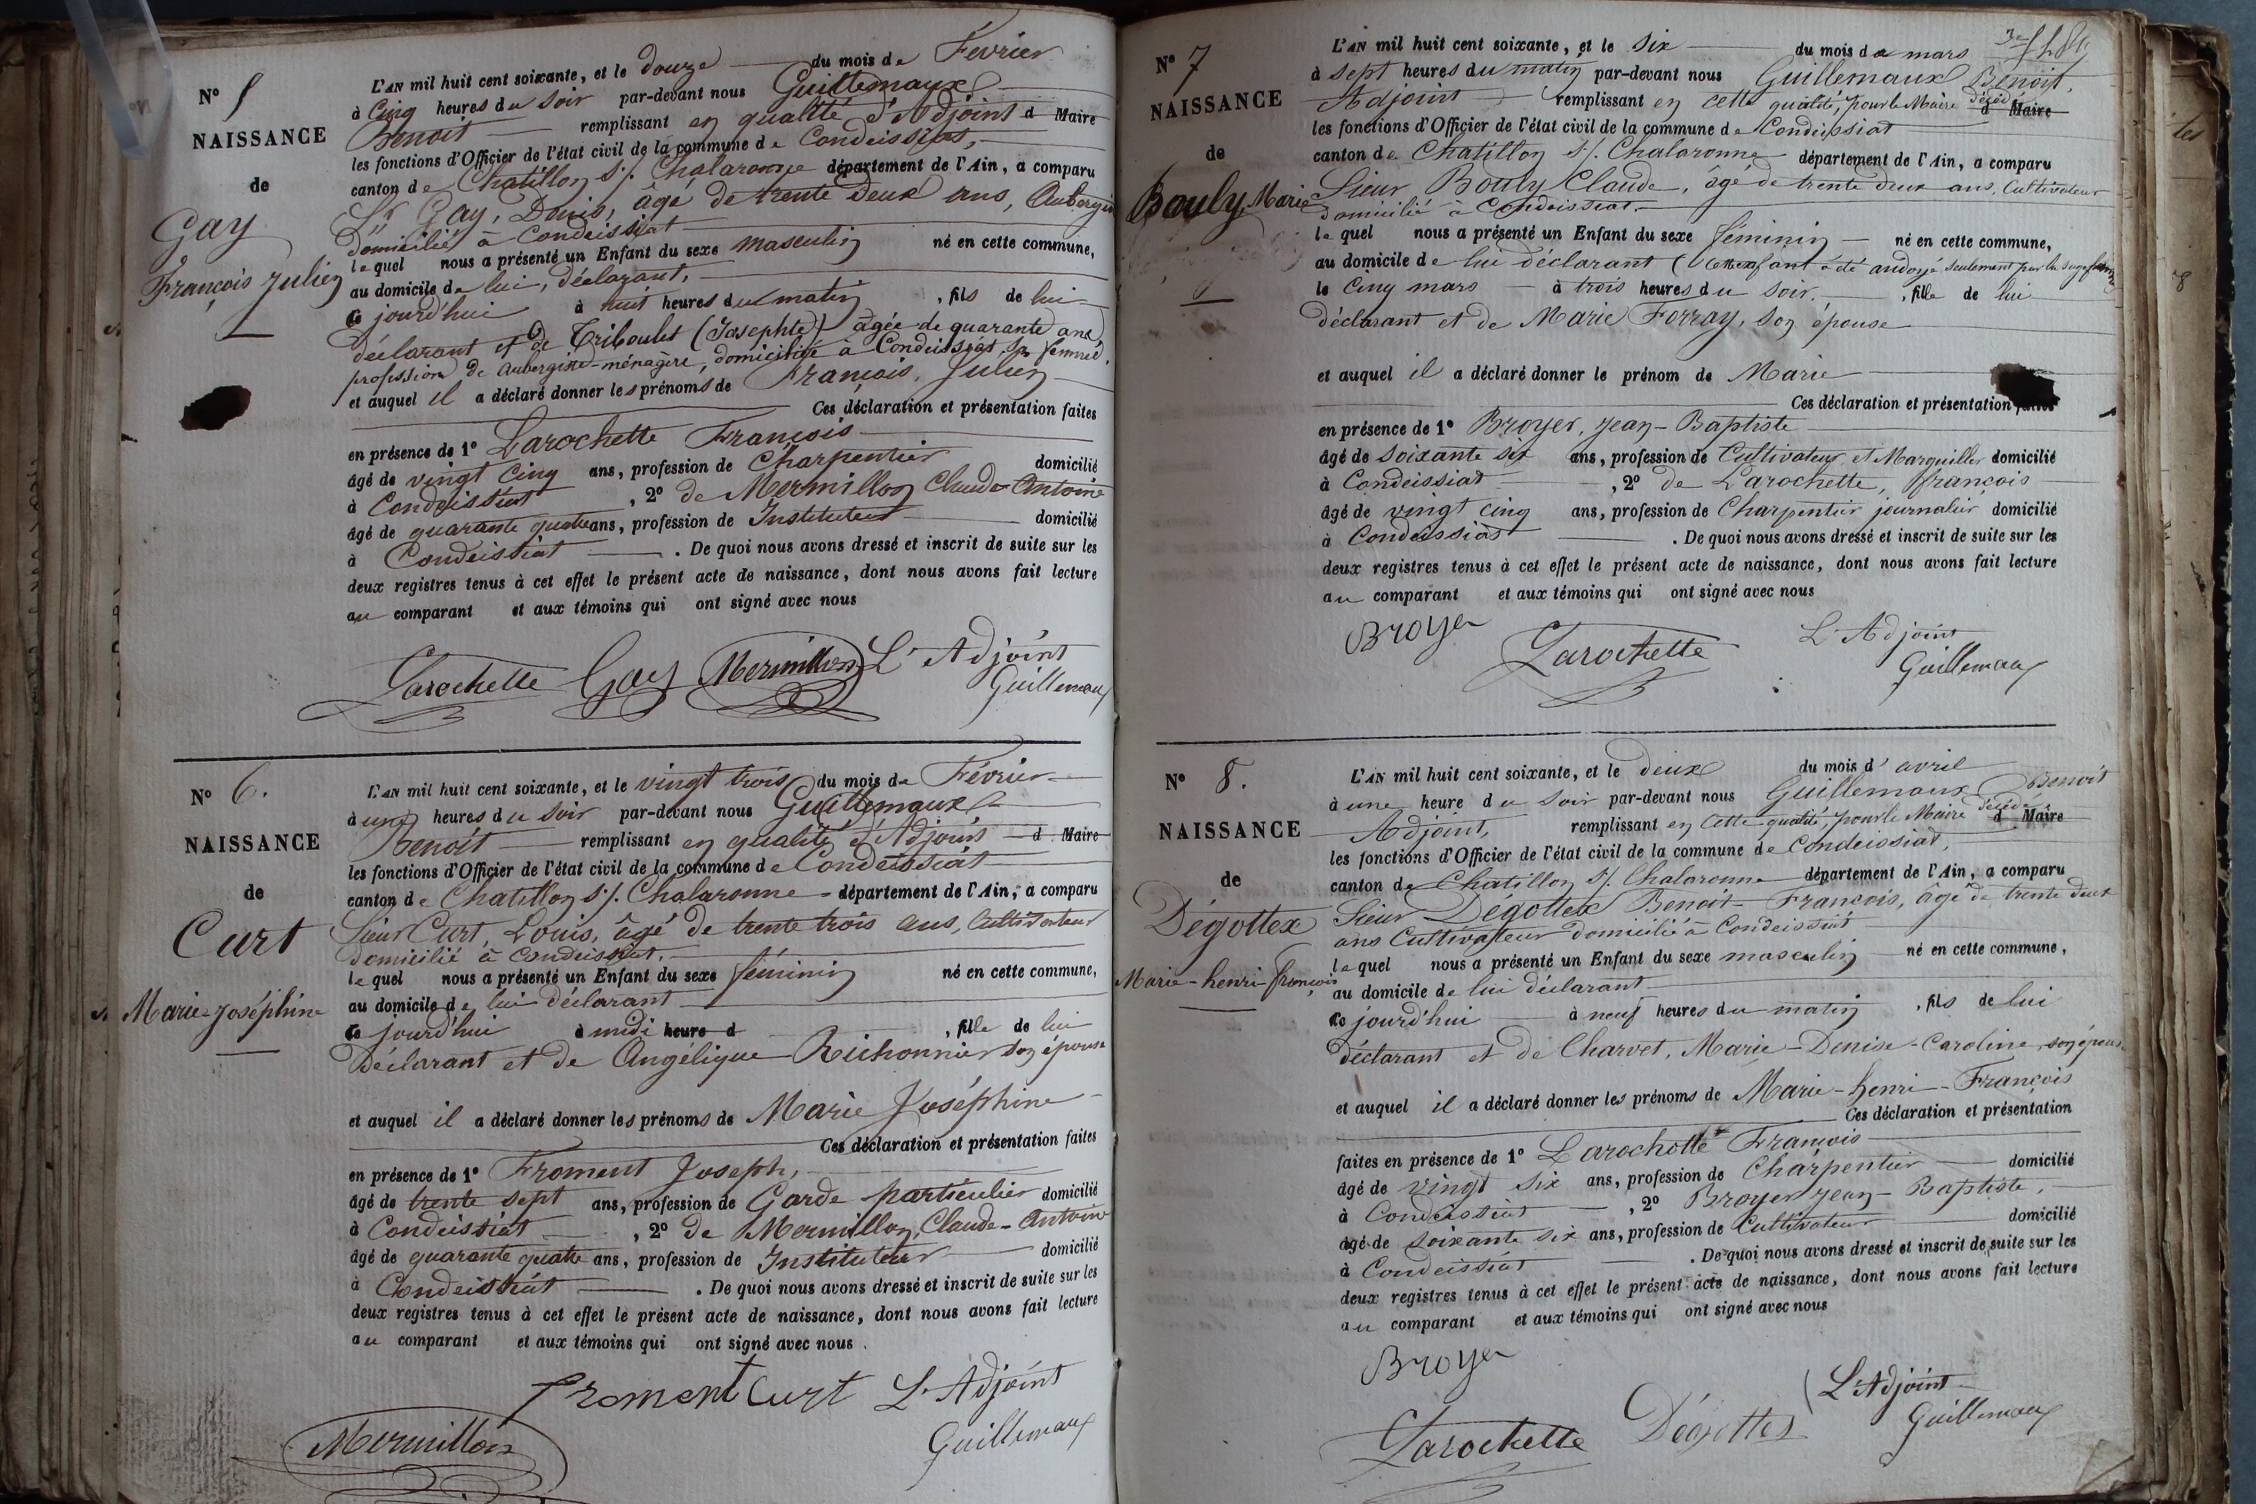 N° 5
NAISSANCE
de
Gay
François Julien
L'AN mil huit cent soixante, et le douze du mois de Février
à Cinq heures du soir par-devant nous Guillemaux
Benoit remplissant en qualité d'Adjoint d Maire
les fonctions d'Officier de l'état civil de la commune de Condeissiat,
canton de Chatillon s/. Chalaronne département de l'Ain, a comparu
Sr Gay, Denis, âgé de trente deux ans, Aubergiste
domicilié à Condeissiat
lequel nous a présenté un Enfant du sexe masculin né en cette commune,
au domicile de lui, déclarant,
ce jourd'hui à huit heures du matin, fils de lui
déclarant et de Triboulet (Josephte) âgée de quarante ans,
profession de Aubergiste-ménagère, domiciliée à Condeissiat sa femme.
et auquel il a déclaré donner les prénoms de François, Julien
Ces déclaration et présentation faites
en présence de 1° Larochette François
âgé de vingt cinq ans, profession de Charpentier domicilié
à Condeissiat, 2° de Mermillon Claude Antoine
âgé de quarante quatre ans, profession de Instituteur domicilié
à Condeissiat. De quoi nous avons dressé et inscrit de suite sur les
deux registres tenus à cet effet le présent acte de naissance, dont nous avons fait lecture
au comparant et aux témoins qui ont signé avec nous
Larochette Gay Mermillon L'Adjoint
Guillemaux
N° 6.
NAISSANCE
de
Curt
Marie-Joséphine
L'AN mil huit cent soixante, et le vingt trois du mois de Février
à une heures du soir par-devant nous Guillemaux
Benoit remplissant en qualité d'Adjoint d Maire
les fonctions d'Officier de l'état civil de la commune de Condeissiat
canton de Chatillon s/. Chalaronne département de l'Ain, a comparu
Sieur Curt, Louis, âgé de trente trois ans, Cultivateur
domicilié à Condeissiat.
lequel nous a présenté un Enfant du sexe féminin né en cette commune,
au domicile de lui déclarant
ce jourd'hui à midi heure d, fille de lui
Déclarant et de Angélique Richonnier son épouse
et auquel il a déclaré donner les prénoms de Marie Joséphine
Ces déclaration et présentation faites
en présence de 1° Froment Joseph,
âgé de trente sept ans, profession de Garde particulier domicilié
à Condeissiat, 2° de Mermillon, Claude-Antoine
âgé de quarante quatre ans, profession de Instituteur domicilié
à Condeissiat. De quoi nous avons dressé et inscrit de suite sur les
deux registres tenus à cet effet le présent acte de naissance, dont nous avons fait lecture
au comparant et aux témoins qui ont signé avec nous.
froment Curt L'Adjoint
Mermillon Guillemaux
N° 7
NAISSANCE
de
Bouly Marie
L'AN mil huit cent soixante, et le six du mois de mars
à sept heures du matin par-devant nous Guillemaux Benoit,
Adjoint remplissant en cette qualité, pour le Maire décédé d Maire
les fonctions d'Officier de l'état civil de la commune de Condeissiat
canton de Chatillon s/. Chalaronne département de l'Ain, a comparu
Sieur Bouly Claude, âgé de trente deux ans, Cultivateur
domicilié à Condeissiat.
lequel nous a présenté un Enfant du sexe féminin né en cette commune,
au domicile de lui déclarant (cet enfant a été andoyé seulement par la sage femme)
le Cinq mars à trois heures du soir, fille de lui
déclarant et de Marie Forray, son épouse
et auquel il a déclaré donner le prénom de Marie
Ces déclaration et présentation faites
en présence de 1° Broyer, Jean-Baptiste
âgé de soixante six ans, profession de Cultivateur et Marguiller domicilié
à Condeissiat, 2° de Larochette, françois
âgé de vingt cinq ans, profession de Charpentier journalier domicilié
à Condeissiat. De quoi nous avons dressé et inscrit de suite sur les
deux registres tenus à cet effet le présent acte de naissance, dont nous avons fait lecture
au comparant et aux témoins qui ont signé avec nous
Broyer Larochette L'Adjoint
Guillemaux
N° 8.
NAISSANCE
de
Dégottex
Marie-henri-françois
L'AN mil huit cent soixante, et le deux du mois d'avril
à une heure du soir par-devant nous Guillemaux Benoit
Adjoint, remplissant en cette qualité, pour le Maire décédé d Maire
les fonctions d'Officier de l'état civil de la commune de Condeissiat,
canton de Chatillon s/. Chalaronne département de l'Ain, a comparu
Sieur Dégottex Benoit-François, âgé de trente deux
ans Cultivateur domicilié à Condeissiat
lequel nous a présenté un Enfant du sexe masculin né en cette commune,
au domicile de lui déclarant
ce jourd'hui à neuf heures du matin, fils de lui
déclarant et de Charvet, Marie-Denise-Caroline, son épouse
et auquel il a déclaré donner les prénoms de Marie-henri-François
Ces déclaration et présentation
faites en présence de 1° Larochette François
âgé de vingt six ans, profession de Charpentier domicilié
à Condeissiat, 2° Broyer Jean-Baptiste,
âgé de soixante six ans, profession de Cultivateur domicilié
à Condeissiat. De quoi nous avons dressé et inscrit de suite sur les
deux registres tenus à cet effet le présent acte de naissance, dont nous avons fait lecture
au comparant et aux témoins qui ont signé avec nous
Broyer
Larochette Dégottex L'Adjoint
Guillemaux